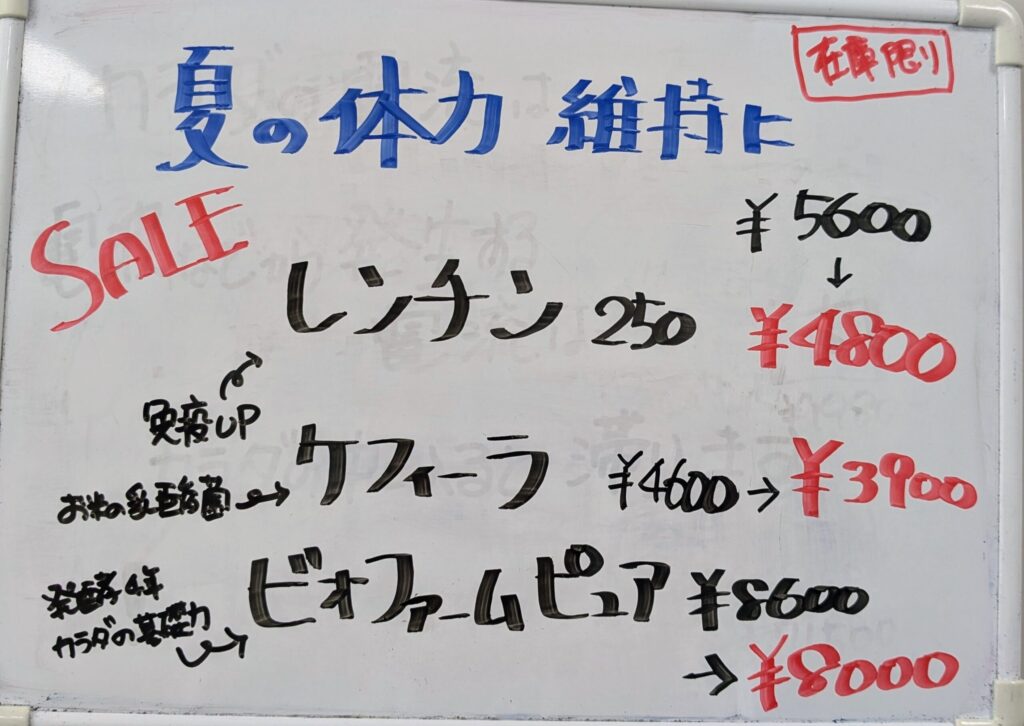 在庫限り
夏の体力 維持に
SALE
¥5600
↓
レンチン 250 ¥4800
免疫UP
ケフィーラ ¥4600→¥3900
お米の乳酸菌
ビオファームピュア ¥8600
→¥8000
発酵4年
カラダの基礎力